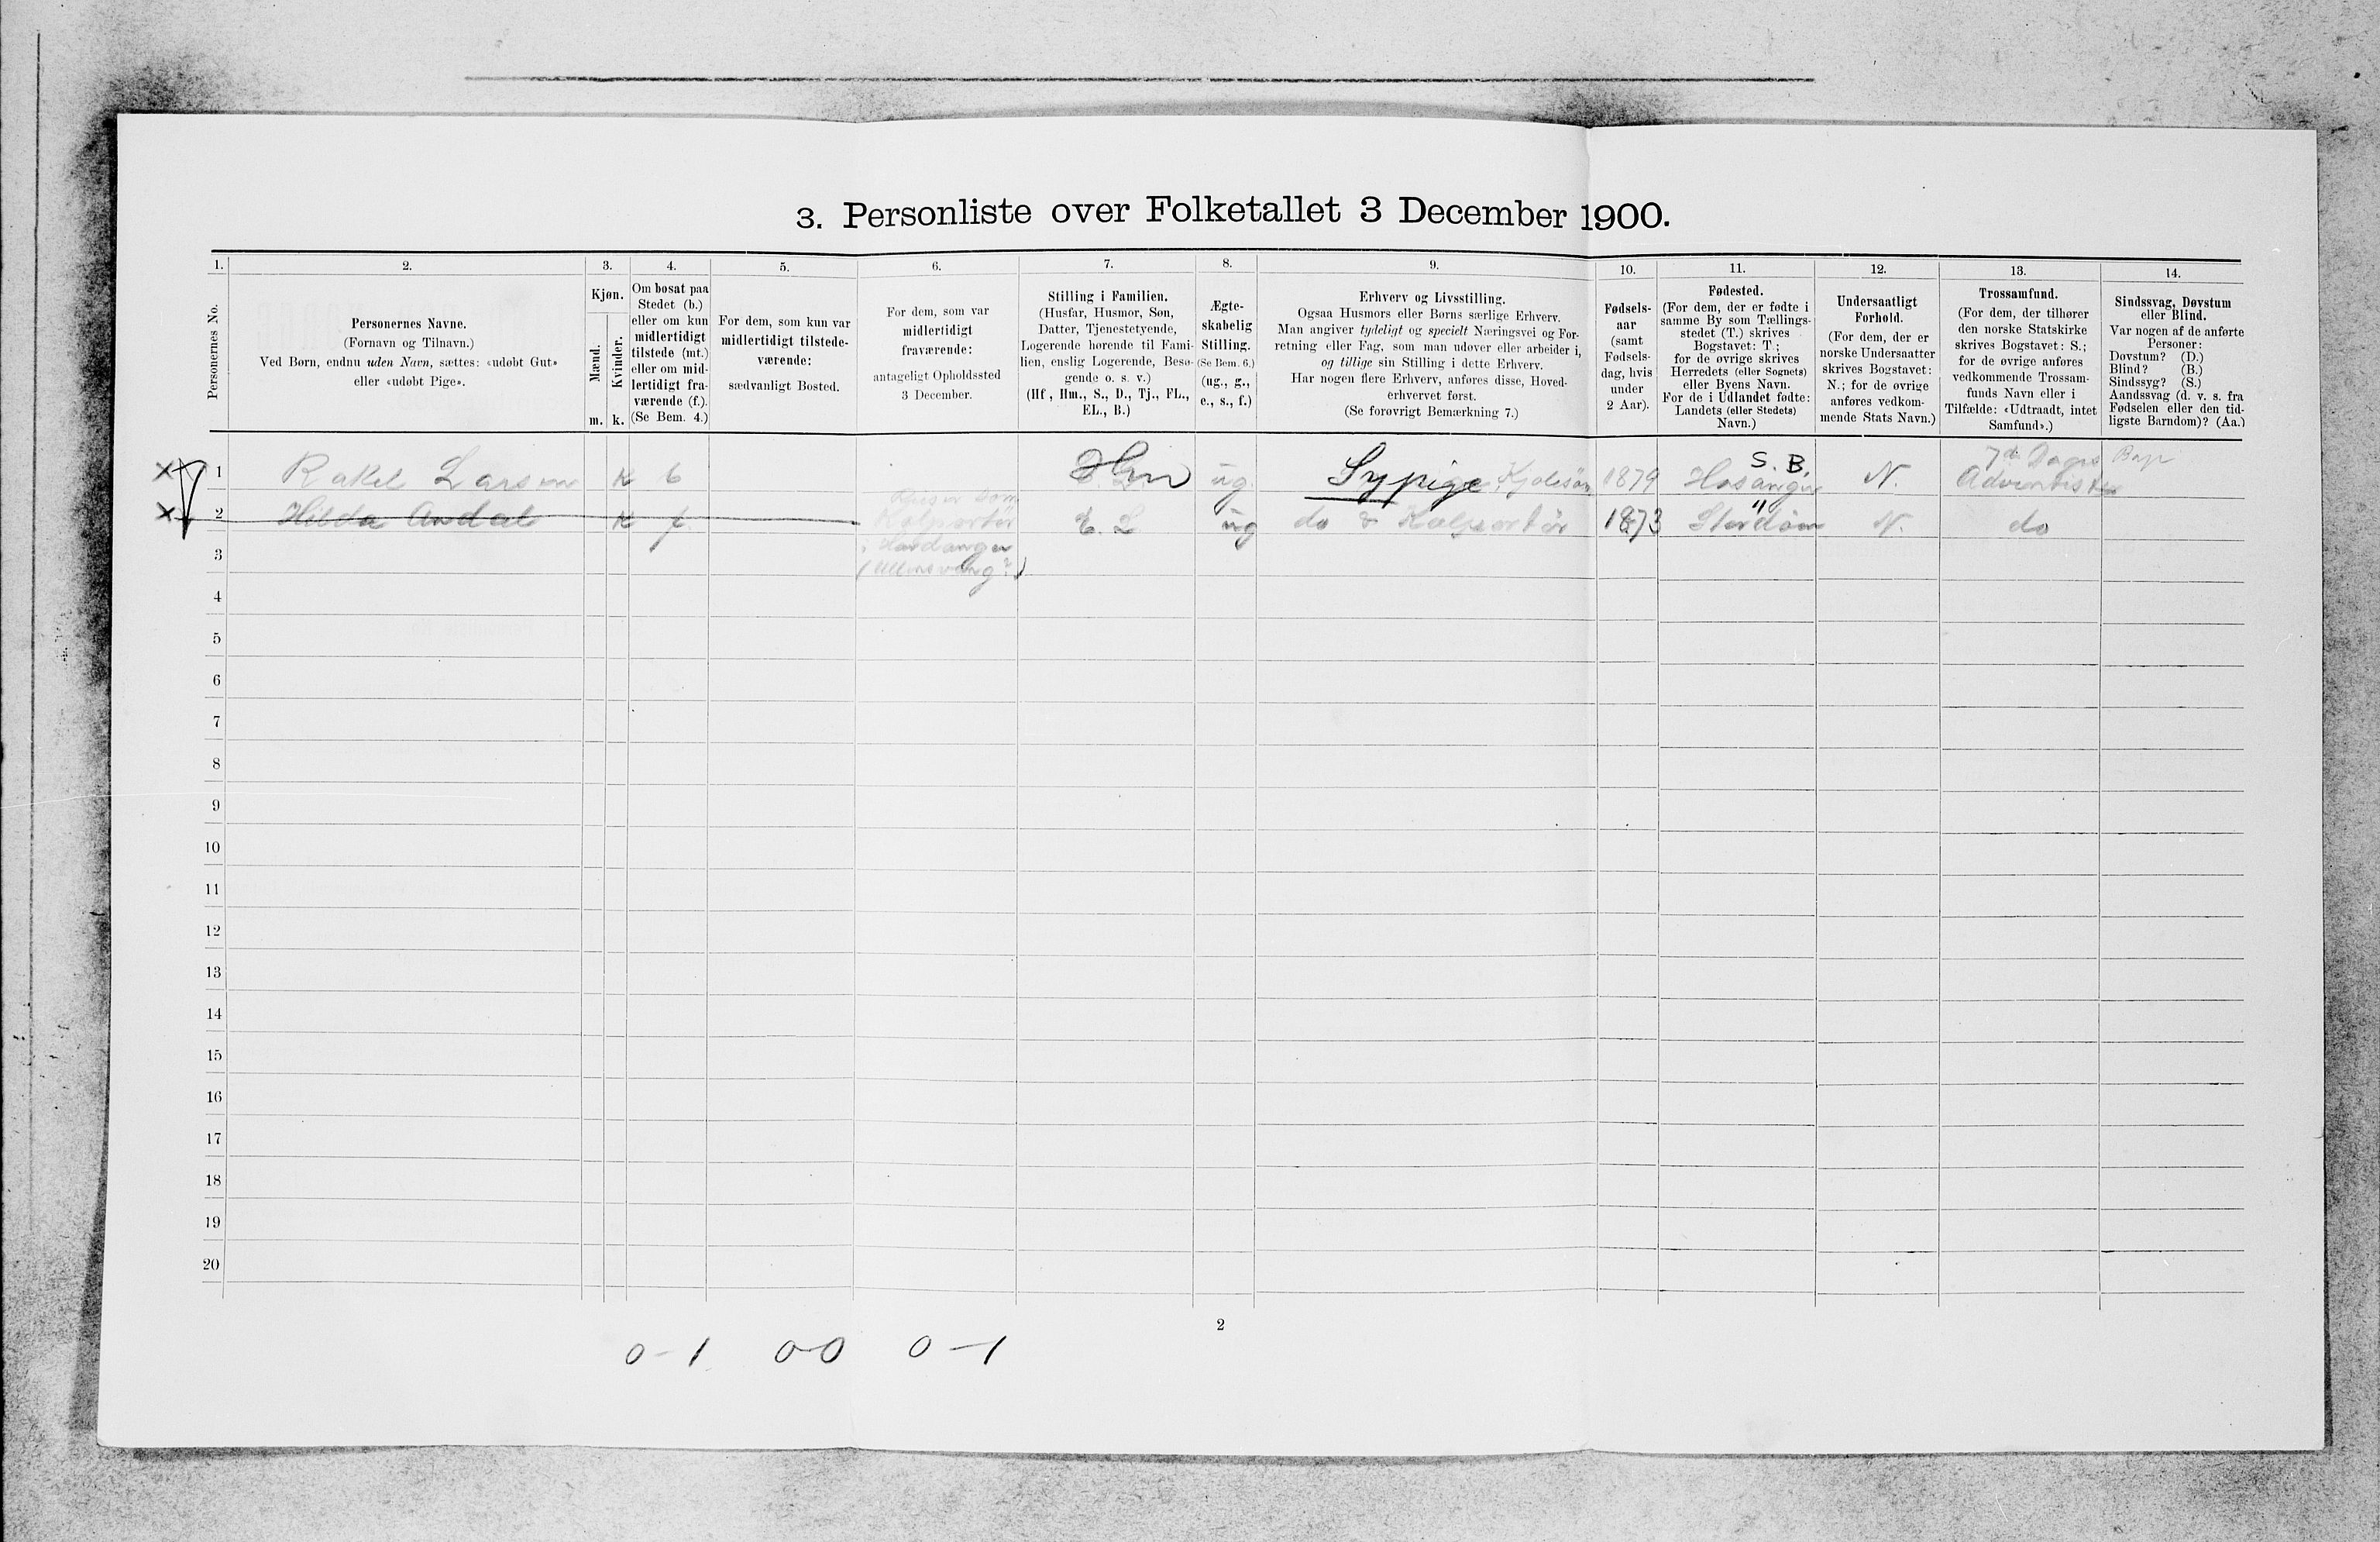 3. Personliste over Folketallet 3 December 1900.
1. 2. 3. 4. 5. 6. 7. 8. 9. 10. 11. 12. 13. 14.
Personernes No.
Personernes Navne.
(Fornavn og Tilnavn.)
Ved Børn, endnu uden Navn, sættes: «udøbt Gut»
eller «udøbt Pige».
Kjøn.
Mænd.
Kvinder.
m. k.
Om bosat paa
Stedet (b.)
eller om kun
midlertidigt
tilstede (mt.)
eller om mid-
lertidigt fra-
værende (f.).
(Se Bem. 4.)
For dem, som kun var
midlertidigt tilstede-
værende:
sædvanligt Bosted.
For dem, som var
midlertidigt
fraværende:
antageligt Opholdssted
3 December.
Stilling i Familien.
(Husfar, Husmor, Søn,
Datter, Tjenestetyende,
Logerende hørende til Fami-
lien, enslig Logerende, Besø-
gende o. s. v.)
(Hf., Hm., S., D., Tj., FL.,
EL., B.)
Ægte-
skabelig
Stilling.
(Se Bem. 6.)
(ug., g.,
e., s., f.)
Erhverv og Livsstilling.
Ogsaa Husmors eller Børns særlige Erhverv.
Man angiver tydeligt og specielt Næringsvei og For-
retning eller Fag, som man udøver eller arbeider i,
og tillige sin Stilling i dette Erhverv.
Har nogen flere Erhverv, anføres disse, Hoved-
erhvervet først.
(Se forøvrigt Bemærkning 7.)
Fødsels-
aar
(samt
Fødsels-
dag, hvis
under
2 Aar).
Fødested.
(For dem, der er fødte i
samme By som Tællings-
stedet (T.) skrives
Bogstavet: T;
for de øvrige skrives
Herredets (eller Sognets)
eller Byens Navn.
For de i Udlandet fødte:
Landets (eller Stedets)
Navn.)
Undersaatligt
Forhold.
(For dem, der er
norske Undersaatter
skrives Bogstavet:
N.; for de øvrige
anføres vedkom-
mende Stats Navn.)
Trossamfund.
(For dem, der tilhører
den norske Statskirke
skrives Bogstavet: S.;
for de øvrige anføres
vedkommende Trossam-
funds Navn eller i
Tilfælde: «Udtraadt, intet
Samfund».)
Sindssvag, Døvstum
eller Blind.
Var nogen af de anførte
Personer:
Døvstum? (D.)
Blind? (B.)
Sindssyg? (S.)
Aandssvag (d. v. s. fra
Fødselen eller den tid-
ligste Barndom)? (Aa.)
S. B. 7d Dags Bap
1 Rakel Larsen K b Hm ug. Sypige Kjolesøm 1879 Hosanger N. Adventister
2 Hilda Andal K f. Reiser som Kolportør E. L ug do & Kolportør 1873 " Stordøen N. do
3 i Hardanger
(Ullensvang?)
4
5
6
7
8
9
10
11
12
13
14
15
16
17
18
19
20
2
0-1 0-0 0-1